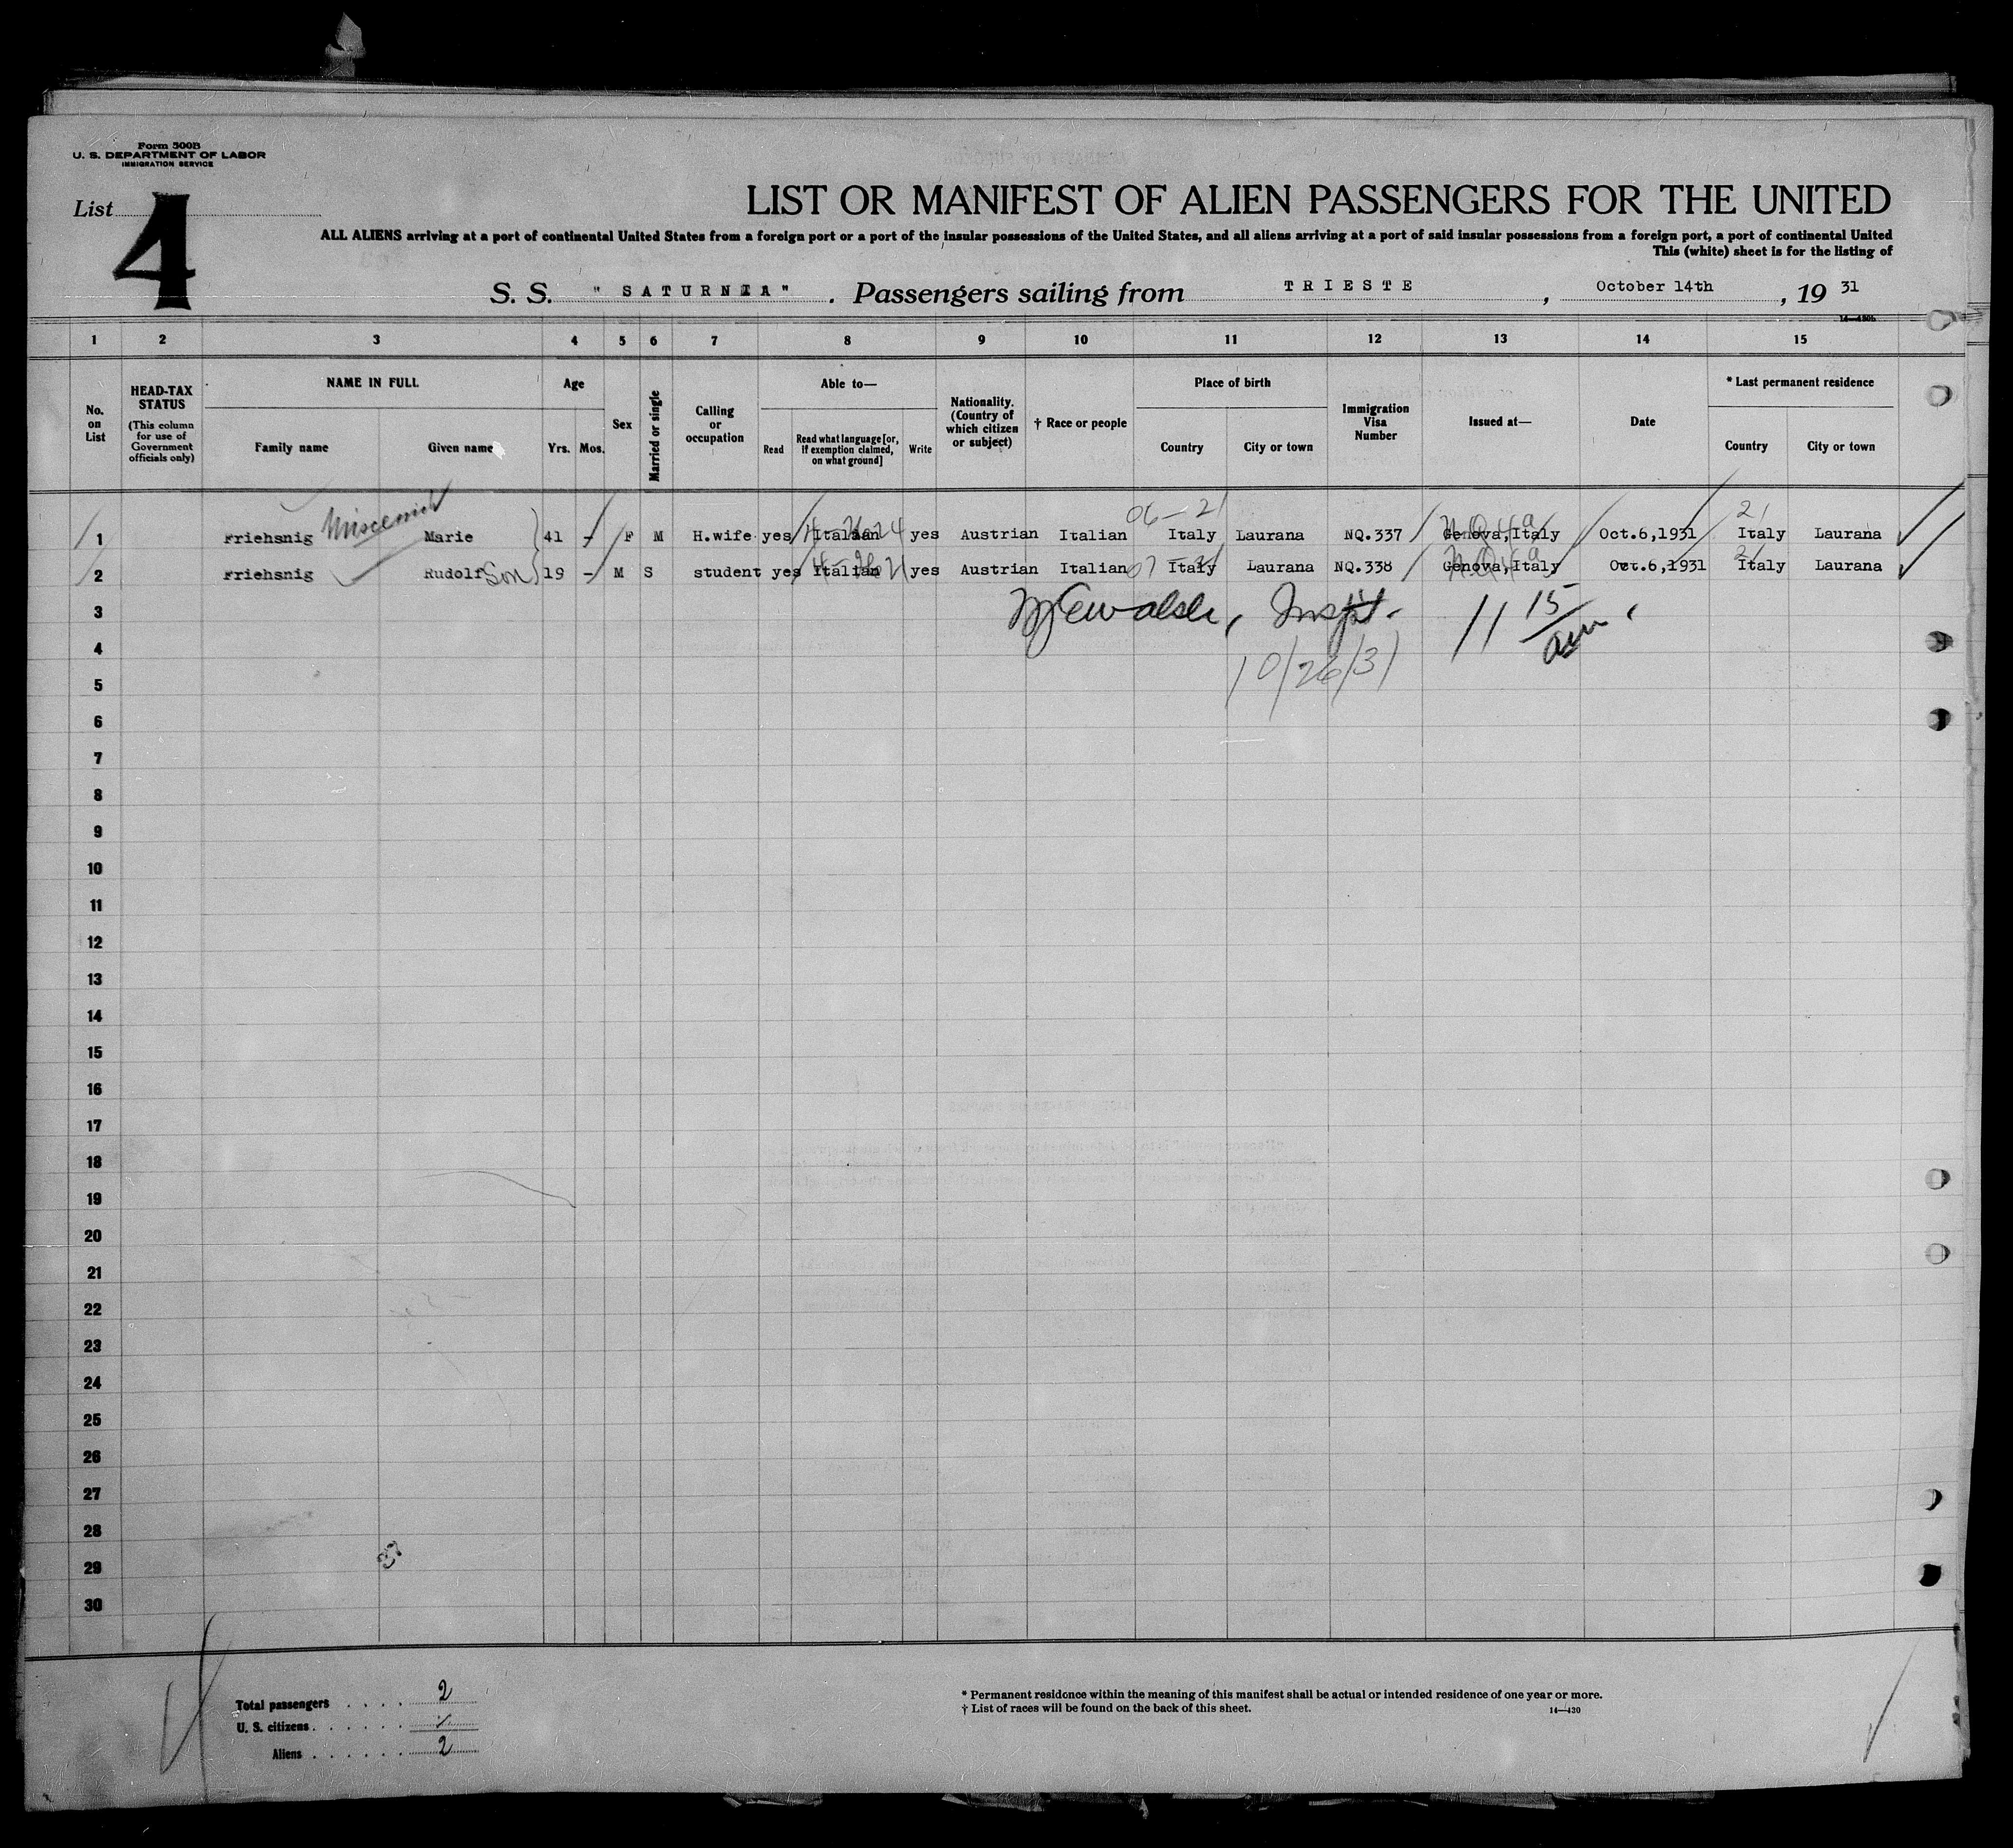 Form 500B
U. S. DEPARTMENT OF LABOR
IMMIGRATION SERVICE
List 4
LIST OR MANIFEST OF ALIEN PASSENGERS FOR THE UNITED
ALL ALIENS arriving at a port of continental United States from a foreign port or a port of the insular possessions of the United States, and all aliens arriving at a port of said insular possessions from a foreign port, a port of continental United
This (white) sheet is for the listing of
S. S. "SATURNIA". Passengers sailing from TRIESTE, October 14th, 19 31
1 2 3 4 5 6 7 8 9 10 11 12 13 14 15
No. on List
HEAD-TAX STATUS (This column for use of Government officials only)
NAME IN FULL
Family name Given name
Age
Yrs. Mos.
Sex
Married or single
Calling or occupation
Able to—
Read Read what language [or, if exemption claimed, on what ground] Write
Nationality. (Country of which citizen or subject)
† Race or people
Place of birth
Country City or town
Immigration Visa Number
Issued at—
Date
* Last permanent residence
Country City or town
06-21 21
1 Friehsnig Marie 41 - F M H.wife yes Italian yes Austrian Italian Italy Laurana NQ.337 Genova,Italy Oct.6,1931 Italy Laurana
2 Friehsnig Rudolf Son 19 - M S student yes Italian yes Austrian Italian Italy Laurana NQ.338 Genova,Italy Oct.6,1931 Italy Laurana
3 Inspt. 11 15/am
4
10/26/31
5
6
7
8
9
10
11
12
13
14
15
16
17
18
19
20
21
22
23
24
25
26
27
28
29
30
Total passengers . . . . 2
U. S. citizens . . . . . .
Aliens . . . . . . 2
* Permanent residence within the meaning of this manifest shall be actual or intended residence of one year or more.
† List of races will be found on the back of this sheet. 14—430